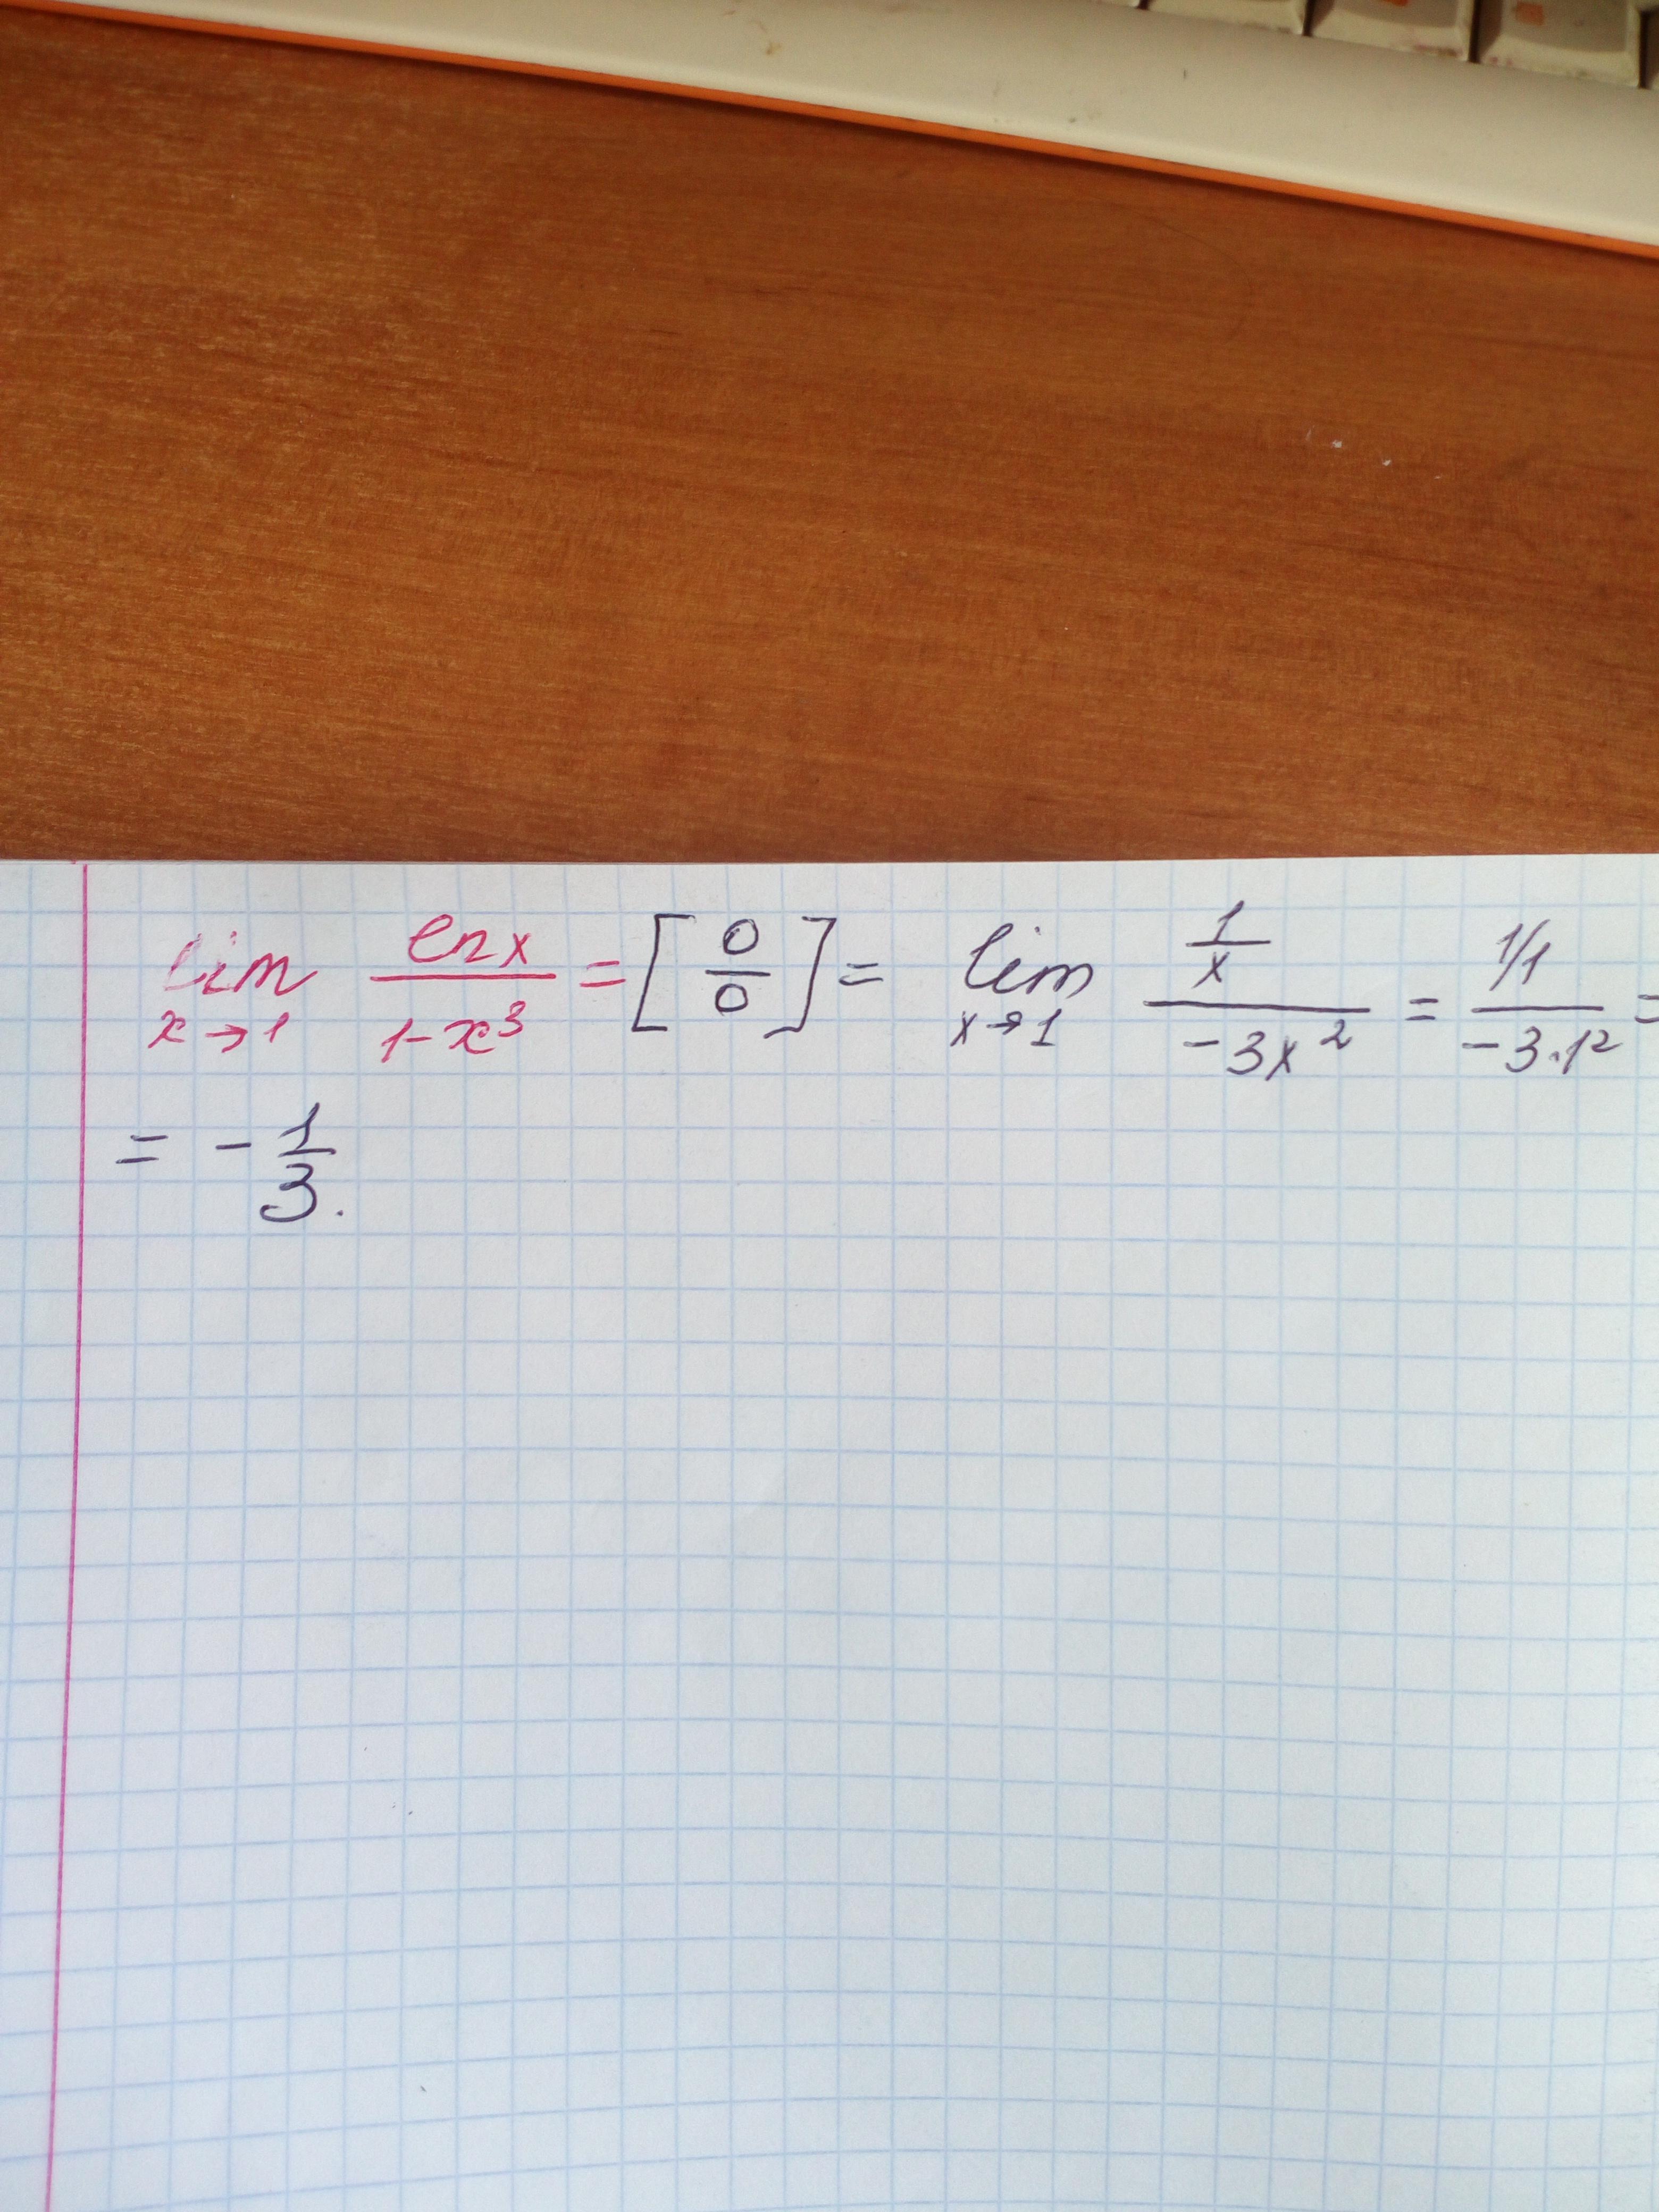 lim x→1 ln x / 1-x³ = [0/0] = lim x→1 1/x / -3x² = 1/1 / -3·1² =
= -1/3.